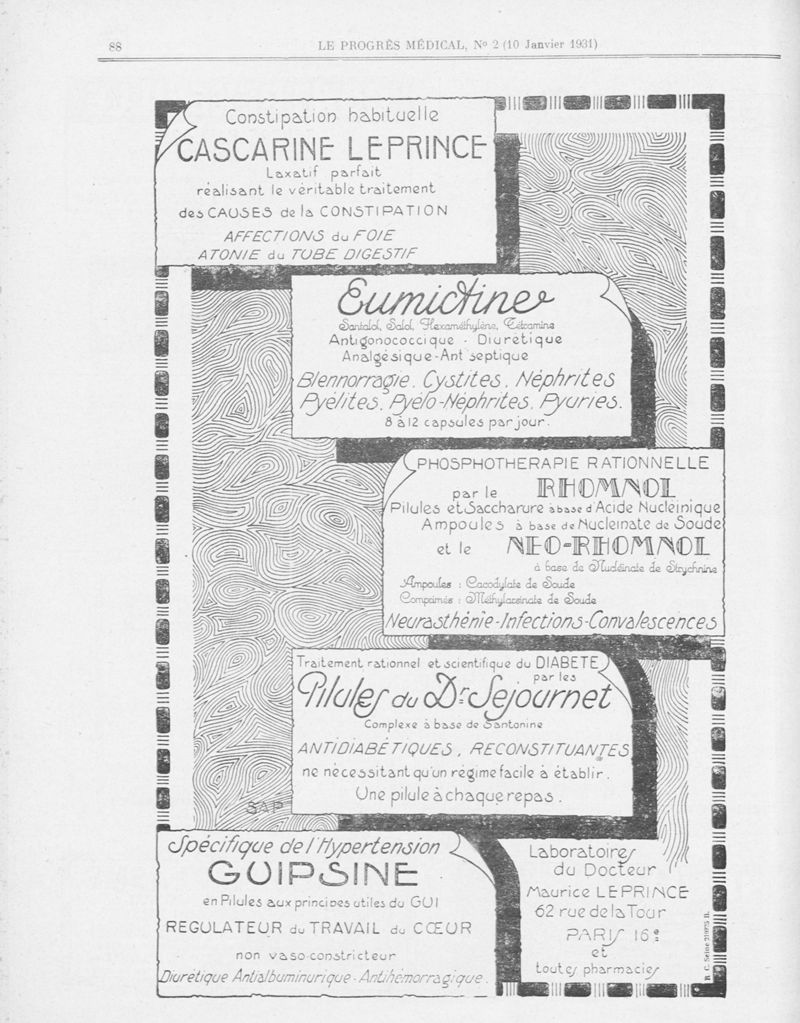 88
LE PROGRÈS MÉDICAL, No 2 (10 Janvier 1931)
Constipation habituelle
CASCARINE LEPRINCE
Laxatif parfait
réalisant le véritable traitement
des CAUSES de la CONSTIPATION
AFFECTIONS du FOIE
ATONIE du TUBE DIGESTIF
Eumictine
Santalol, Salol, Hexaméthylène, Tétramine
Antigonococcique - Diurétique
Analgésique-Ant septique
Blennorragie. Cystites. Néphrites
Pyélites. Pyélo-Néphrites. Pyuries.
8 à 12 capsules par jour.
PHOSPHOTHERAPIE RATIONNELLE
par le RHOMNOL
Pilules et Saccharure à base d'Acide Nucléinique
Ampoules à base de Nucleinate de Soude
et le NEO-RHOMNOL
à base de Nucléinate de Strychnine
Ampoules : Cacodylate de Soude
Comprimés : Méthylarsinate de Soude
Neurasthénie-Infections-Convalescences
Traitement rationnel et scientifique du DIABÈTE
par les
Pilules du Dr. Sejournet
Complexe à base de Santonine
ANTIDIABÉTIQUES, RECONSTITUANTES
ne nécessitant qu'un régime facile à établir.
Une pilule à chaque repas.
SAP
Spécifique de l'Hypertension
GUIPSINE
en Pilules aux principes utiles du GUI
REGULATEUR du TRAVAIL du CŒUR
non vaso-constricteur
Diurétique Antialbuminurique-Antihémorragique.
Laboratoires
du Docteur
Maurice LEPRINCE
62 rue de la Tour
PARIS 16e
et
toutes pharmacies
R. C. Seine